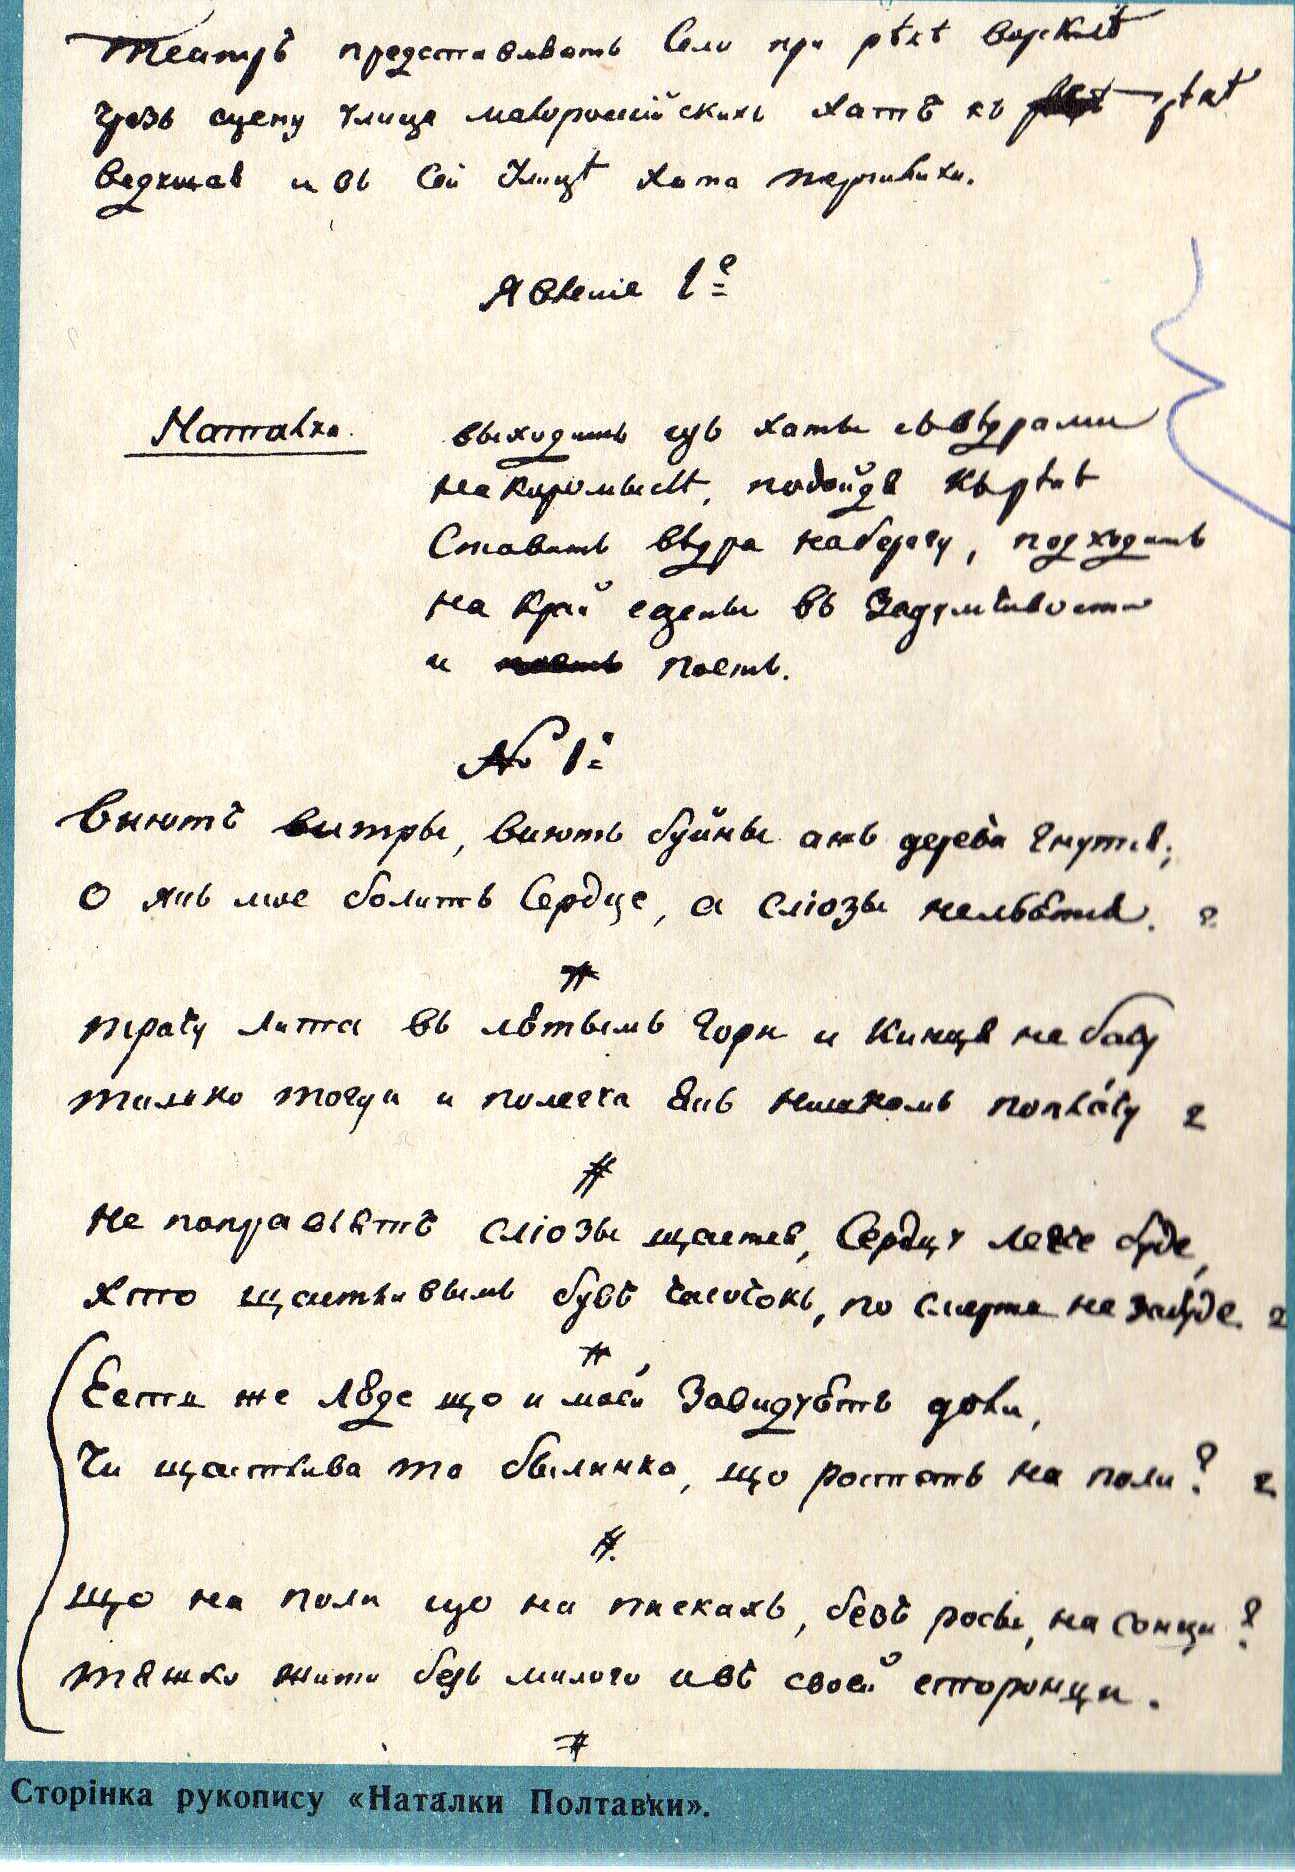 Театръ представляетъ Село при рѣкѣ Ворсклѣ
чрезъ сцену улица малороссійскихъ хатъ къ рѣкѣ
ведущая и въ сей Улицѣ хата Терпилихи.
Явленіе 1е
Наталка.
выходитъ изъ хаты съ вѣдрами
на коромыслѣ, подойдя къ рѣкѣ
Ставитъ вѣдра на берегу, подходитъ
на край сцены въ Задумчивости
и поетъ.
№ 1й
Виютъ витры, виютъ буйны ажъ дерева гнутся;
О якъ мое болитъ Сердце, а сліозы нельются. 2
#
Трачу лита въ лютымъ гори и Кинця не бачу
тилько тогди и полегча якъ нишкомъ поплачу 2
#
Не поправлятъ сліозы щастя, Сердцу легче буде,
Хто щастливымъ бувъ часочокъ, по смерти не забуде. 2
#
Ести же люде що и моей Завидуютъ доли,
Чи щастлива та былинка, що ростетъ на поли? 2
#
що на поли що на пискахъ, безъ росы, на сонци?
тяжко жити безъ милого и въ своей сторонци.
#
Сторінка рукопису «Наталки Полтавки».